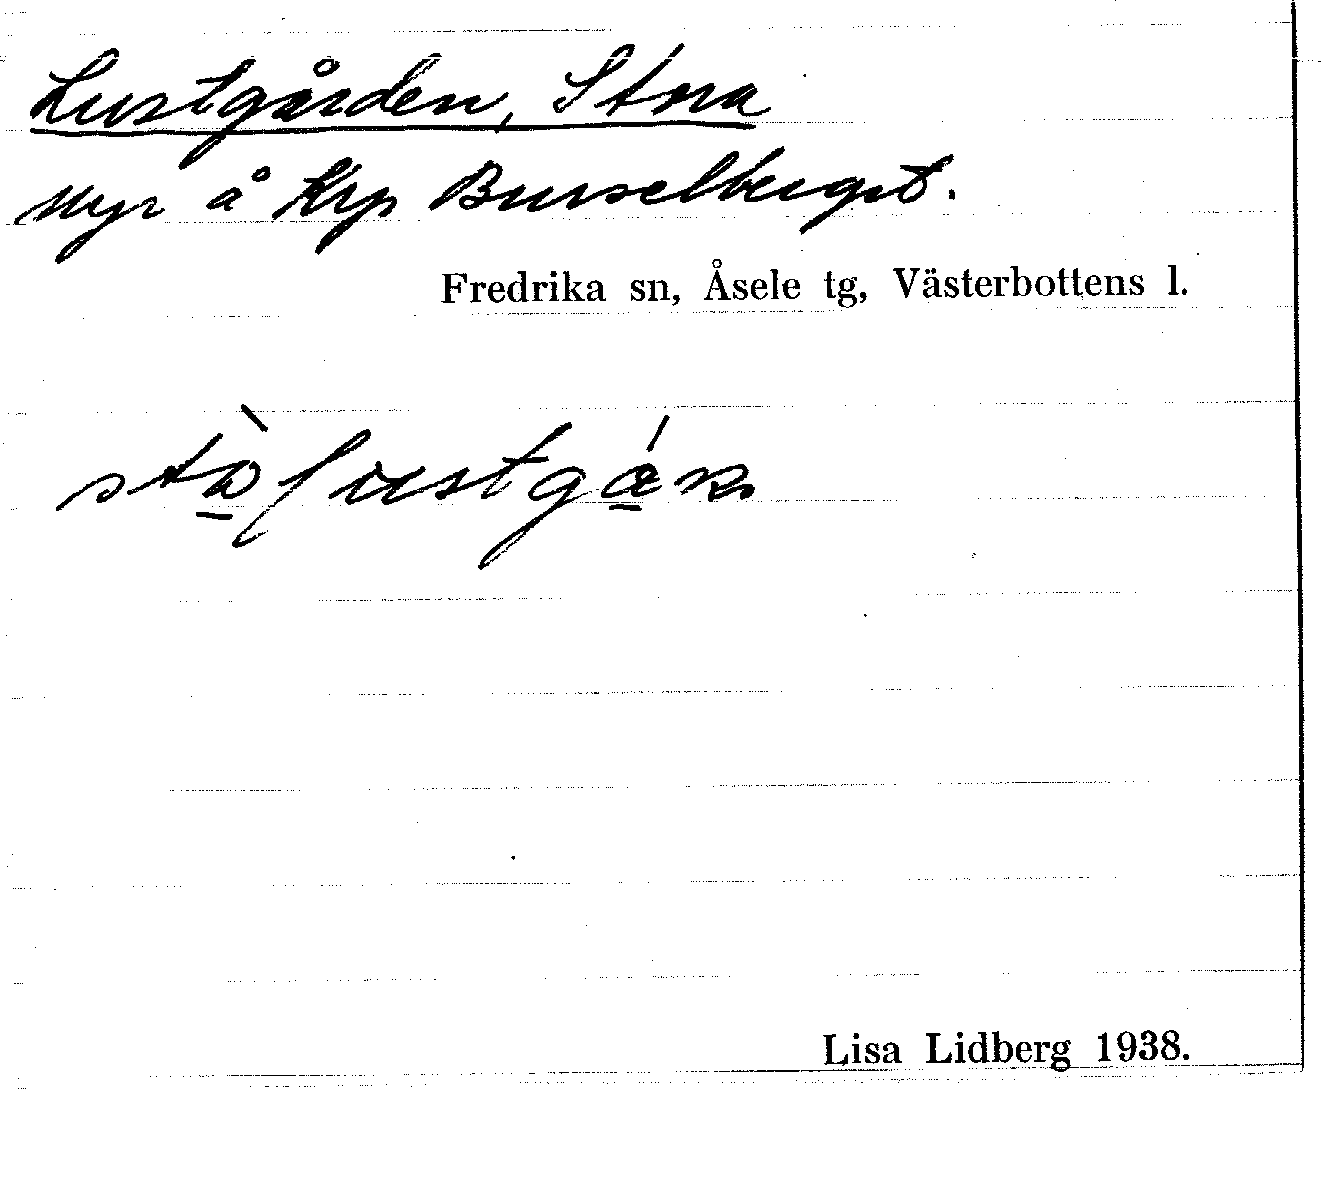 Lustgården, Stora
Myr å krp Burselberget.
Fredrika sn, Åsele tg, Västerbottens l.
Lisa Lidberg 1938.